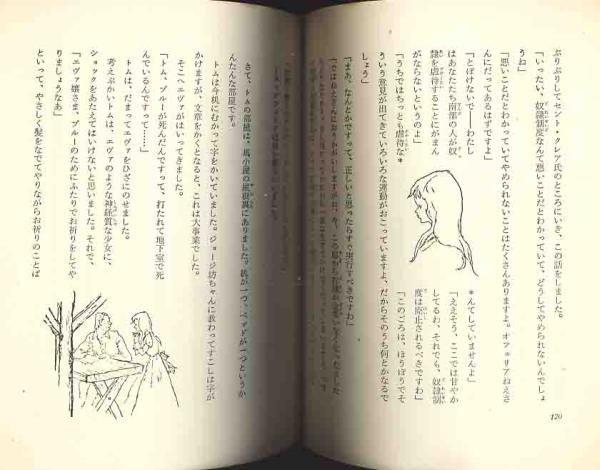 ぷりぷりしてセント・クレア氏のところにいき、この話をしました。
「いったい、奴隷制度なんて悪いことだとわかっていて、どうしてやめられないんでしょ
うね」
「悪いことだとわかっていてやめられないことはたくさんありますよ。オフェリアねえさ
んにだってあるはずですよ」
「とぼけないで――わたし
はあなたたち南部の人が奴
隷を虐待することにがまん
がならないというのよ」
「うちではちっとも虐待な*
*んてしていませんよ」
「ええそう、ここでは甘やか
してるわ、それでも、奴隷制
度は廃止されるべきですわ」
「このごろは、ほうぼうでそ
ういう意見が出てきていろいろな運動がおこっていますよ、だからそのうち何とかなるで
しょう」
「まあ、なんとかですって、正しいと思ったらすぐ実行すべきですわ」
「ではねえさんにおうかがいしますがね
120
さて、トムの部屋は、馬小屋の屋根裏にありました。机が一つ、ベッドが一つというか
んたんな部屋です。
トムは今机にむかって字をかいていました。ジョージ坊ちゃんに教わってすこしは字が
かけますが、文章をかくとなると、これは大事業でした。
そこへエヴァがはいってきました。
「トム、プルーが死んだんですって、打たれて地下室で死
んでいるんですって……」
トムは、だまってエヴァをひざにのせました。
考えぶかいトムは、エヴァのような神経質な少女に、
ショックをあたえてはいけないと思いました。それで、
「エヴァ嬢さま、プルーのためにふたりでお祈りをしてや
りましょうなあ」
といって、やさしく髪をなでてやりながらお祈りのことば